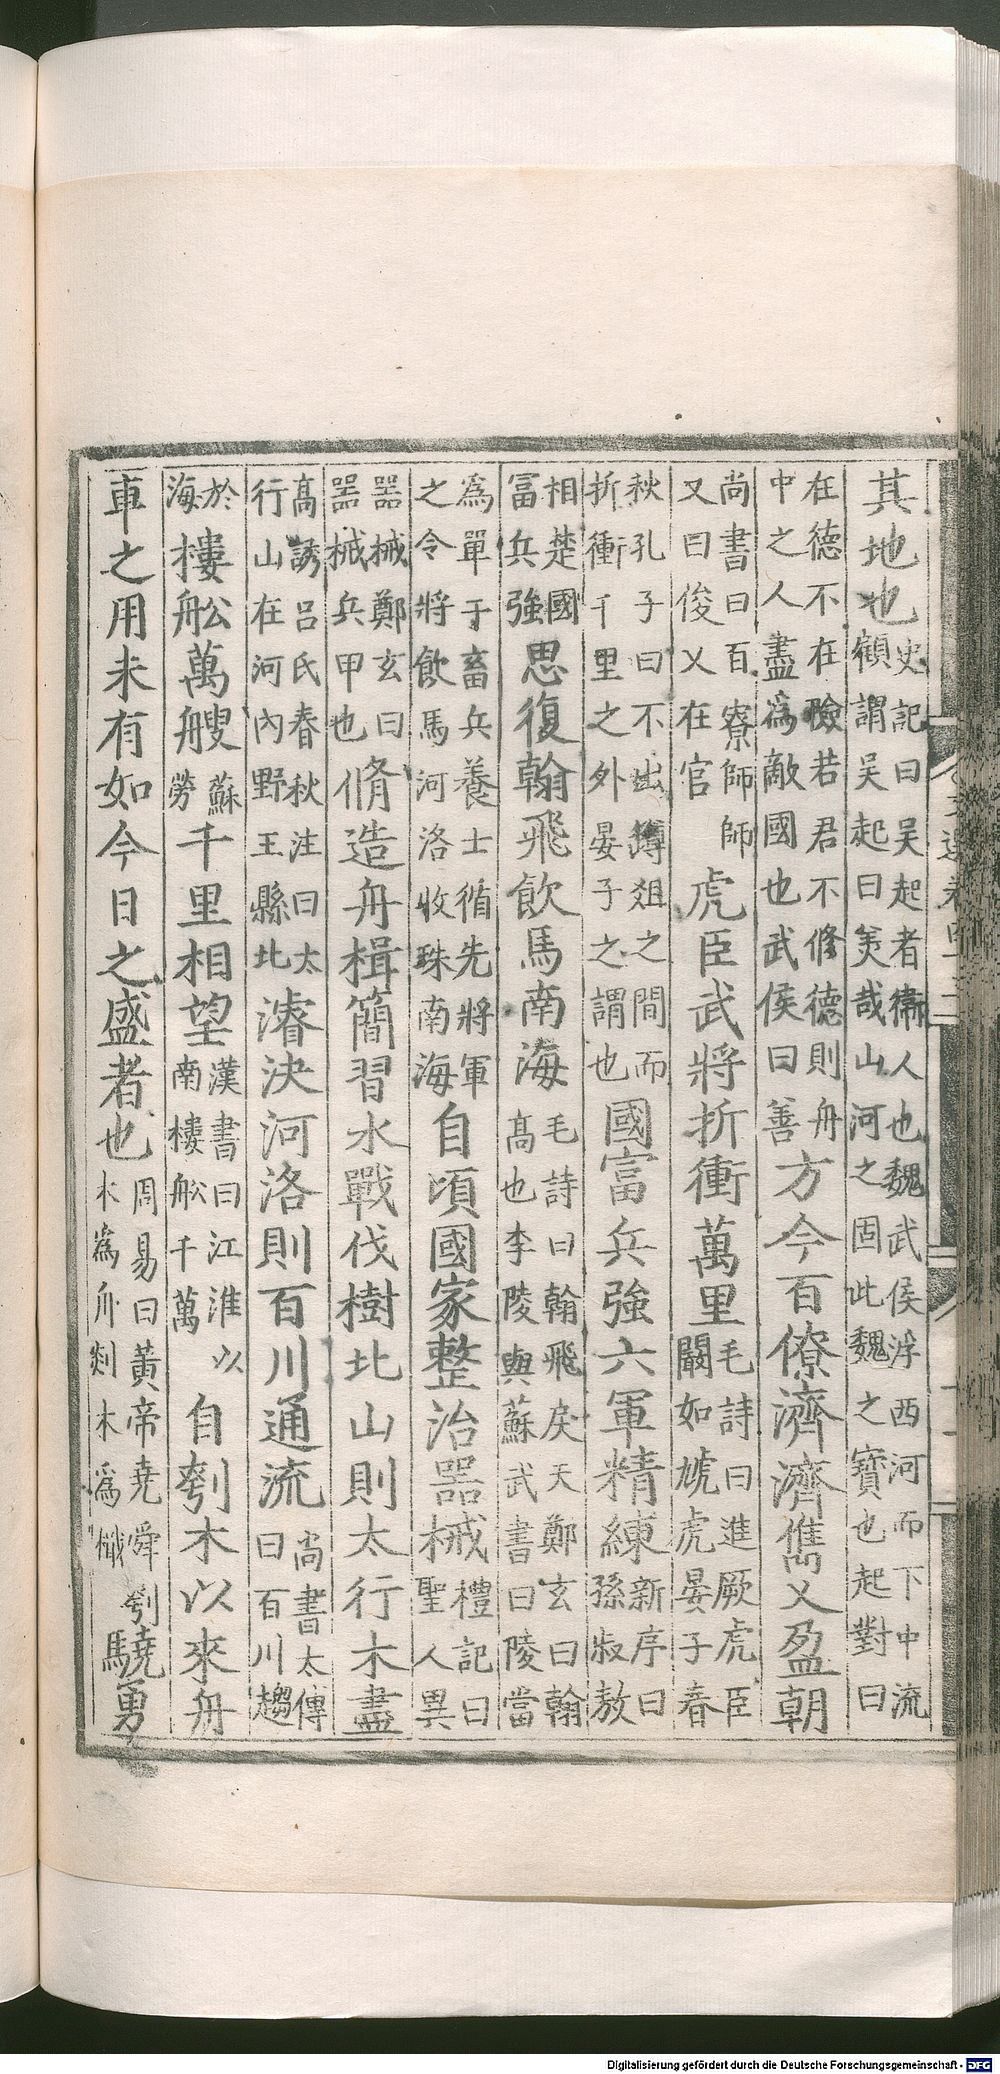 其地也史記曰吴起者衞人也魏武侯浮西河而下中流顧謂吴起曰美哉山河之固此魏之寶也起對曰
在德不在險若君不修德則舟中之人盡爲敵國也武侯曰善方今百僚濟濟儁乂盈朝
尚書曰百寮師師又曰俊乂在官虎臣武將折衝萬里毛詩曰進厥虎臣闞如虓虎晏子春
秋孔子曰不出罇爼之間而折衝千里之外晏子之謂也國富兵強六軍精練新序曰孫叔敖
相楚國富兵強思復翰飛飲馬南海毛詩曰翰飛戾天鄭玄曰翰高也李陵與蘇武書曰陵當
爲單于畜兵養士循先將軍之令將飲馬河洛收珠南海自頃國家整治器械禮記曰聖人異
器械鄭玄曰器械兵甲也脩造舟楫簡習水戰伐樹北山則太行木盡
高誘呂氏春秋注曰太行山在河內野王縣北濬決河洛則百川通流尚書太傳曰百川趨
於海樓舩萬艘蘇勞千里相望漢書曰江淮以南樓舩千萬自刳木以來舟
車之用未有如今日之盛者也周易曰黃帝堯舜刳木爲舟剡木爲檝驍勇
Digitalisierung gefördert durch die Deutsche Forschungsgemeinschaft - DFG